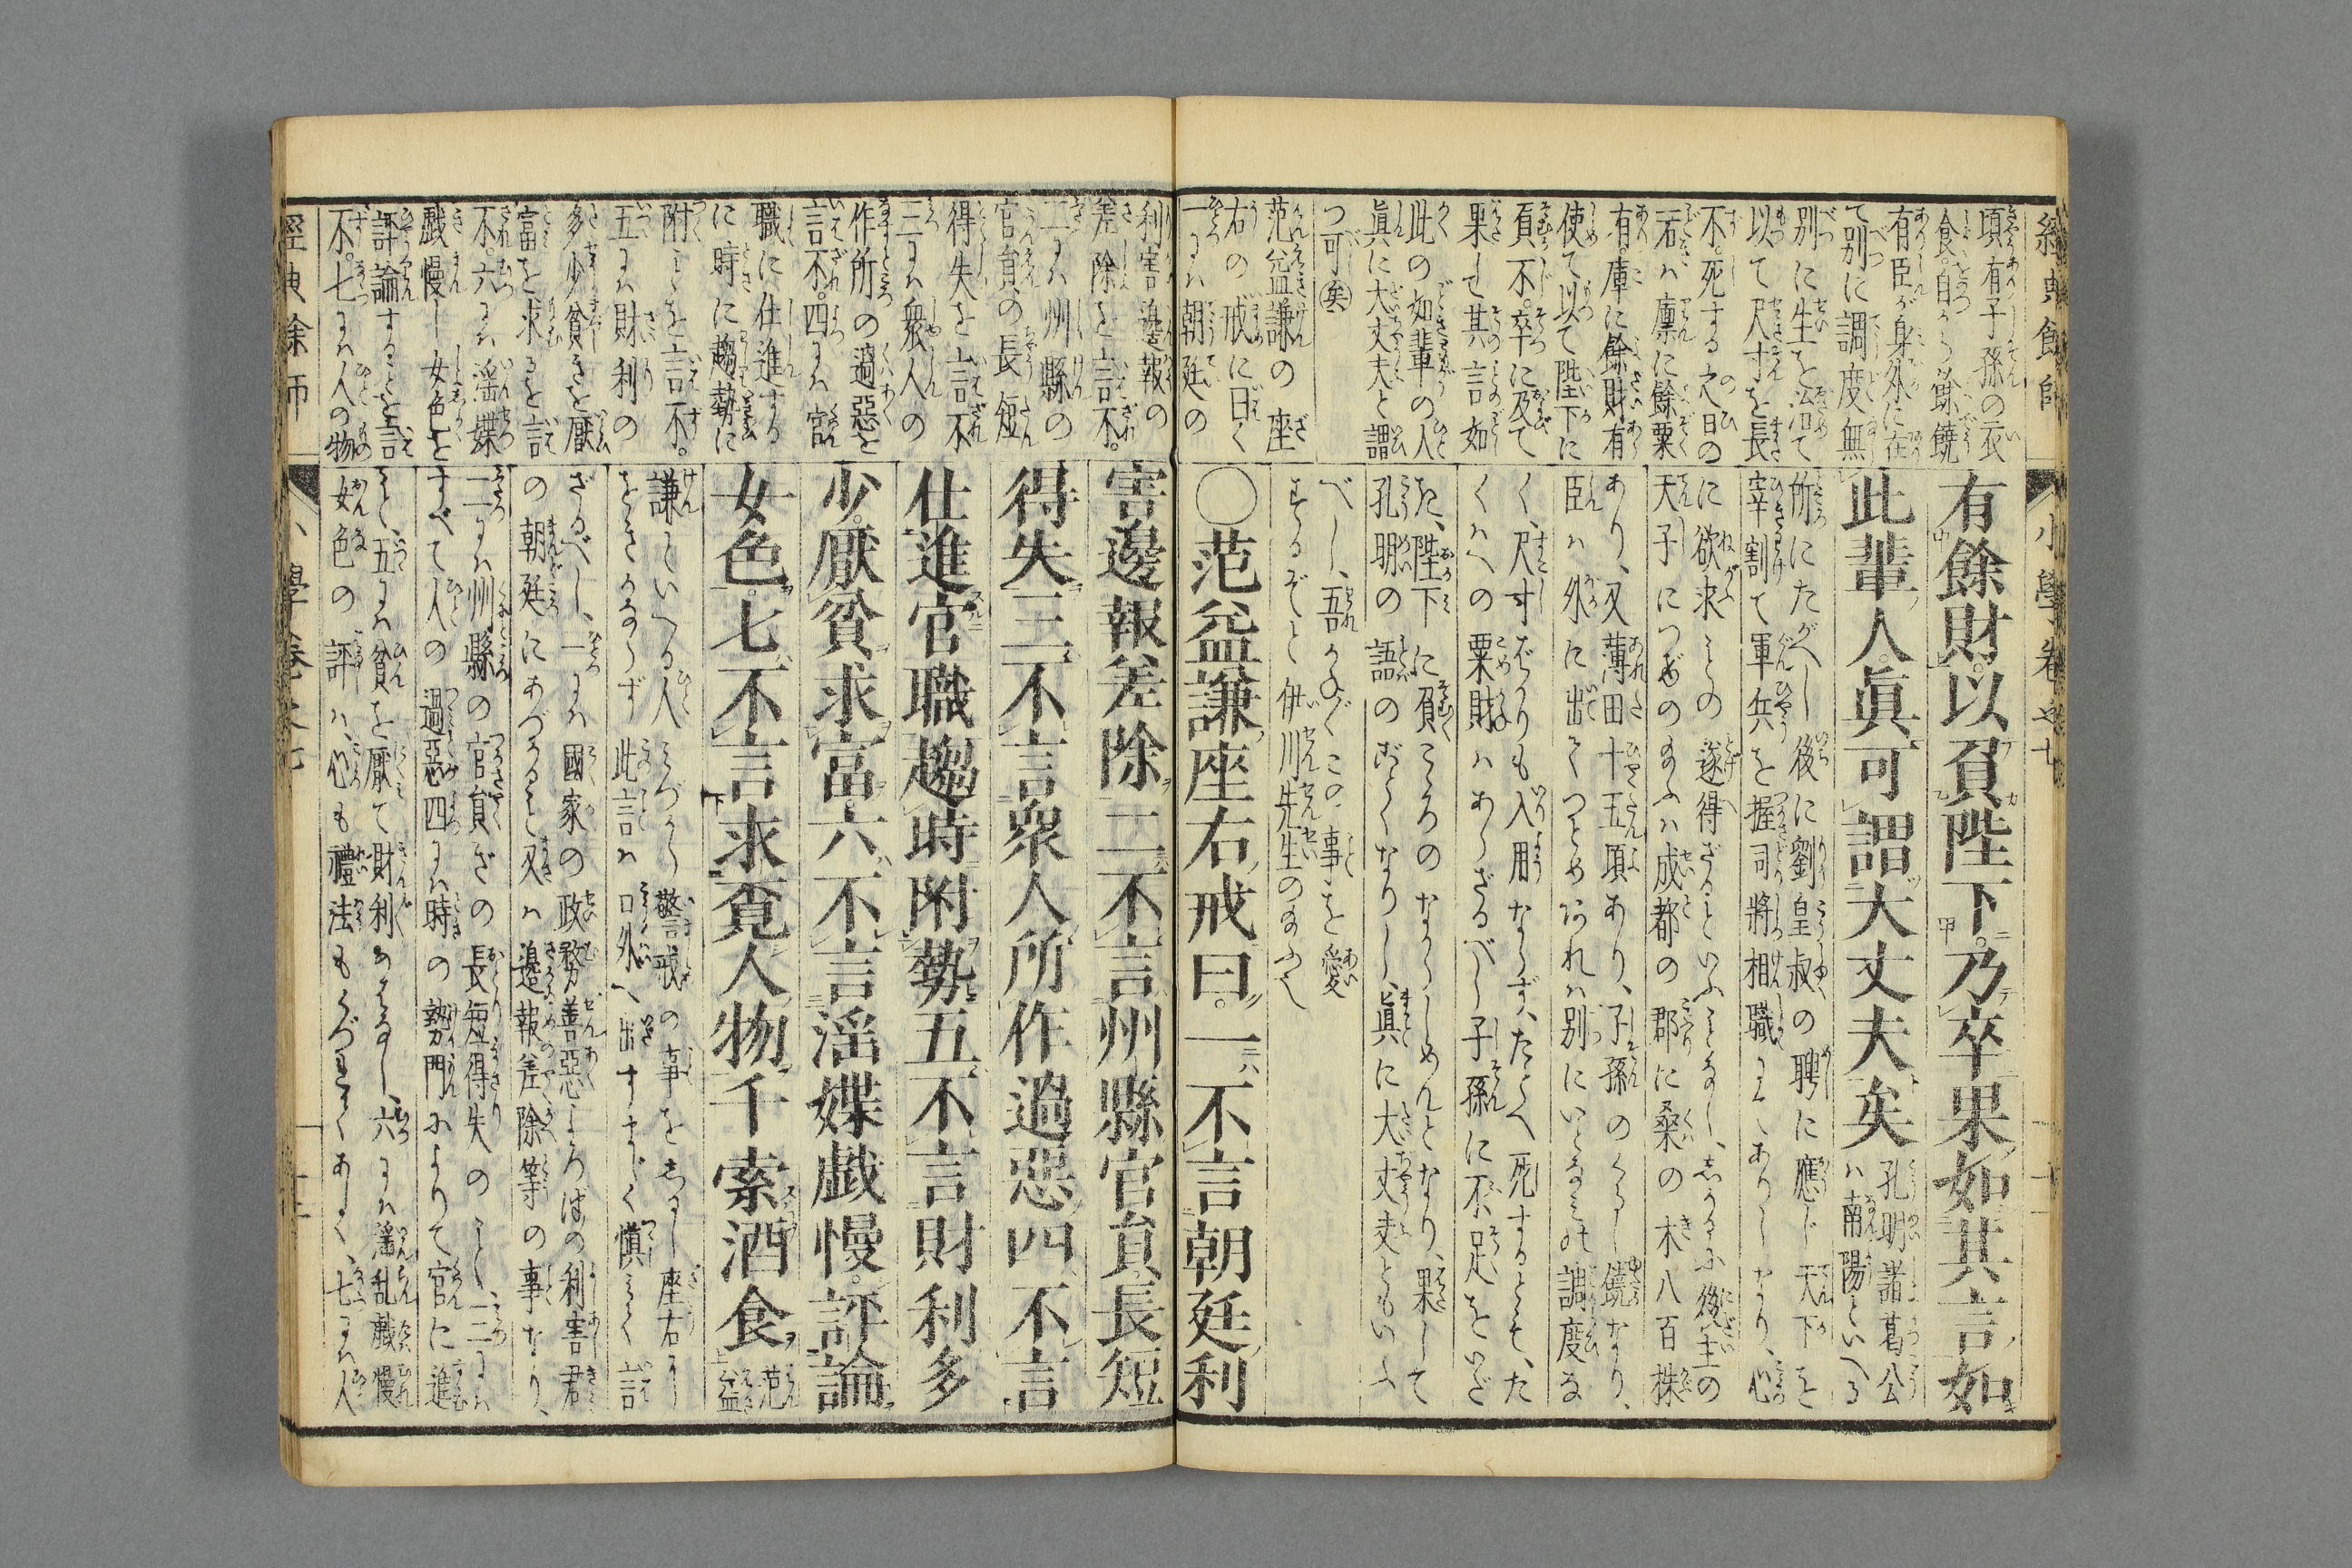 經典餘師
小學卷之七
頃有子孫の衣
食自から餘饒
有臣が身外に在
て別に調度無
別に生を治て
以て尺寸を長
不死する之日の
若ハ廩に餘粟
有庫に餘財有
使て以て陛下に
負不卒に及て
果して其言如
此の如輩の人
眞に大丈夫と謂
つ可矣
范益謙の座
右の戒に曰く
一にハ朝廷の
有餘財。以負陛下。乃卒果如其言如
此輩人眞可謂大丈夫矣
孔明諸葛公
ハ南陽といへる
所にたがへし後に劉皇叔の聘に應じ天下を
宰割て軍兵を握司將相職にてありしなり、心
に欲求ことの遂得ざることいふことなし、しかるに後主の
天子につげのたまふハ成都の郡に桑の木八百株
あり、又薄田十五頃あり、子孫のくらし饒なり、
臣ハ外に出てつとめおれハ別にいとなみの調度な
く、尺寸ばかりも入用ならず、たとへ死するとても、た
くハへの粟財ハあらざるべし子孫に不足をいだ
た、陛下に負ところのなからしめんとなり、果して
孔明の語のごとくなりし、眞に大丈夫ともいふ
べし、吾かのごくこの事を愛
するぞと伊川先生のたまへ
〇范益謙座右戒曰。一不言朝廷利
利害邊報の
差除を言不。
二にハ州縣の
官負の長短
得失を言不
三にハ衆人の
作所の過惡を
言不。四にハ官
職に仕進する
に時に趨勢に
附ことを言不。
五にハ財利の
多少貧きを厭
富を求るを言
不。六にハ淫媟
戲慢し女色を
評論することを言
不。七にハ人の物
害邊報差除二不言州縣官負長短
得失三不言衆人所作過惡四不言
仕進官職趨時附勢五不言財利多
少厭貧求富六不言淫媟戯慢。評論
女色。七不言求覓人物千索酒食
范
益
謙といへる人みづから警戒の事をしるし座右に
をきかならず此言ハ口外へ出すまじく愼みて言
ざるべし、一にハ國家の政務善惡よろぼの利害君
の朝廷にあづかること又ハ邊報差除等の事なり、
二にハ州縣の官負ざの長短得失のこと三にハ
すべて人の過惡四にハ時の勢門によりて官に進
こと、五にハ貧を厭て財利のはなし、六にハ淫乱戯慢
女色の評ハ、心も禮法もくづれてあしく、七にハ人
經典餘師
小學卷之七